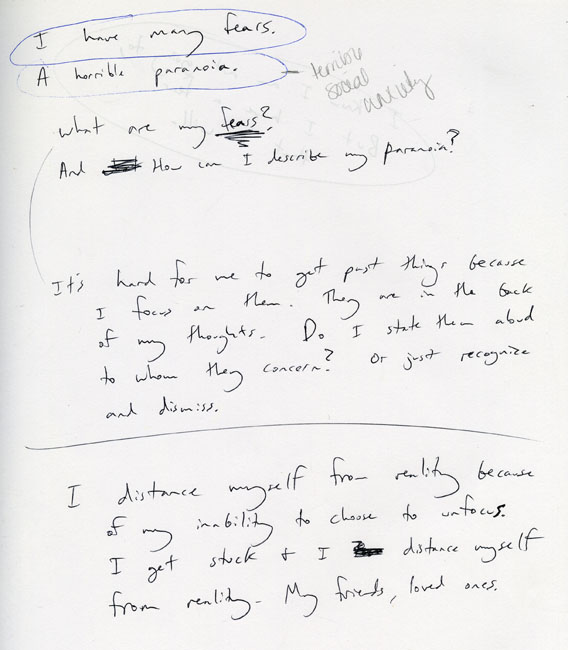 I have many fears.
A horrible paranoia. – terrible
social
anxiety
What are my fears?
And How can I describe my paranoia?
It's hard for me to get past things because
I focus on them. They are in the back
of my thoughts. Do I state them aloud
to whom they concern? Or just recognize
and dismiss.
I distance myself from reality because
of my inability to choose to unfocus.
I get stuck & I distance myself
from reality - My friends, loved ones.